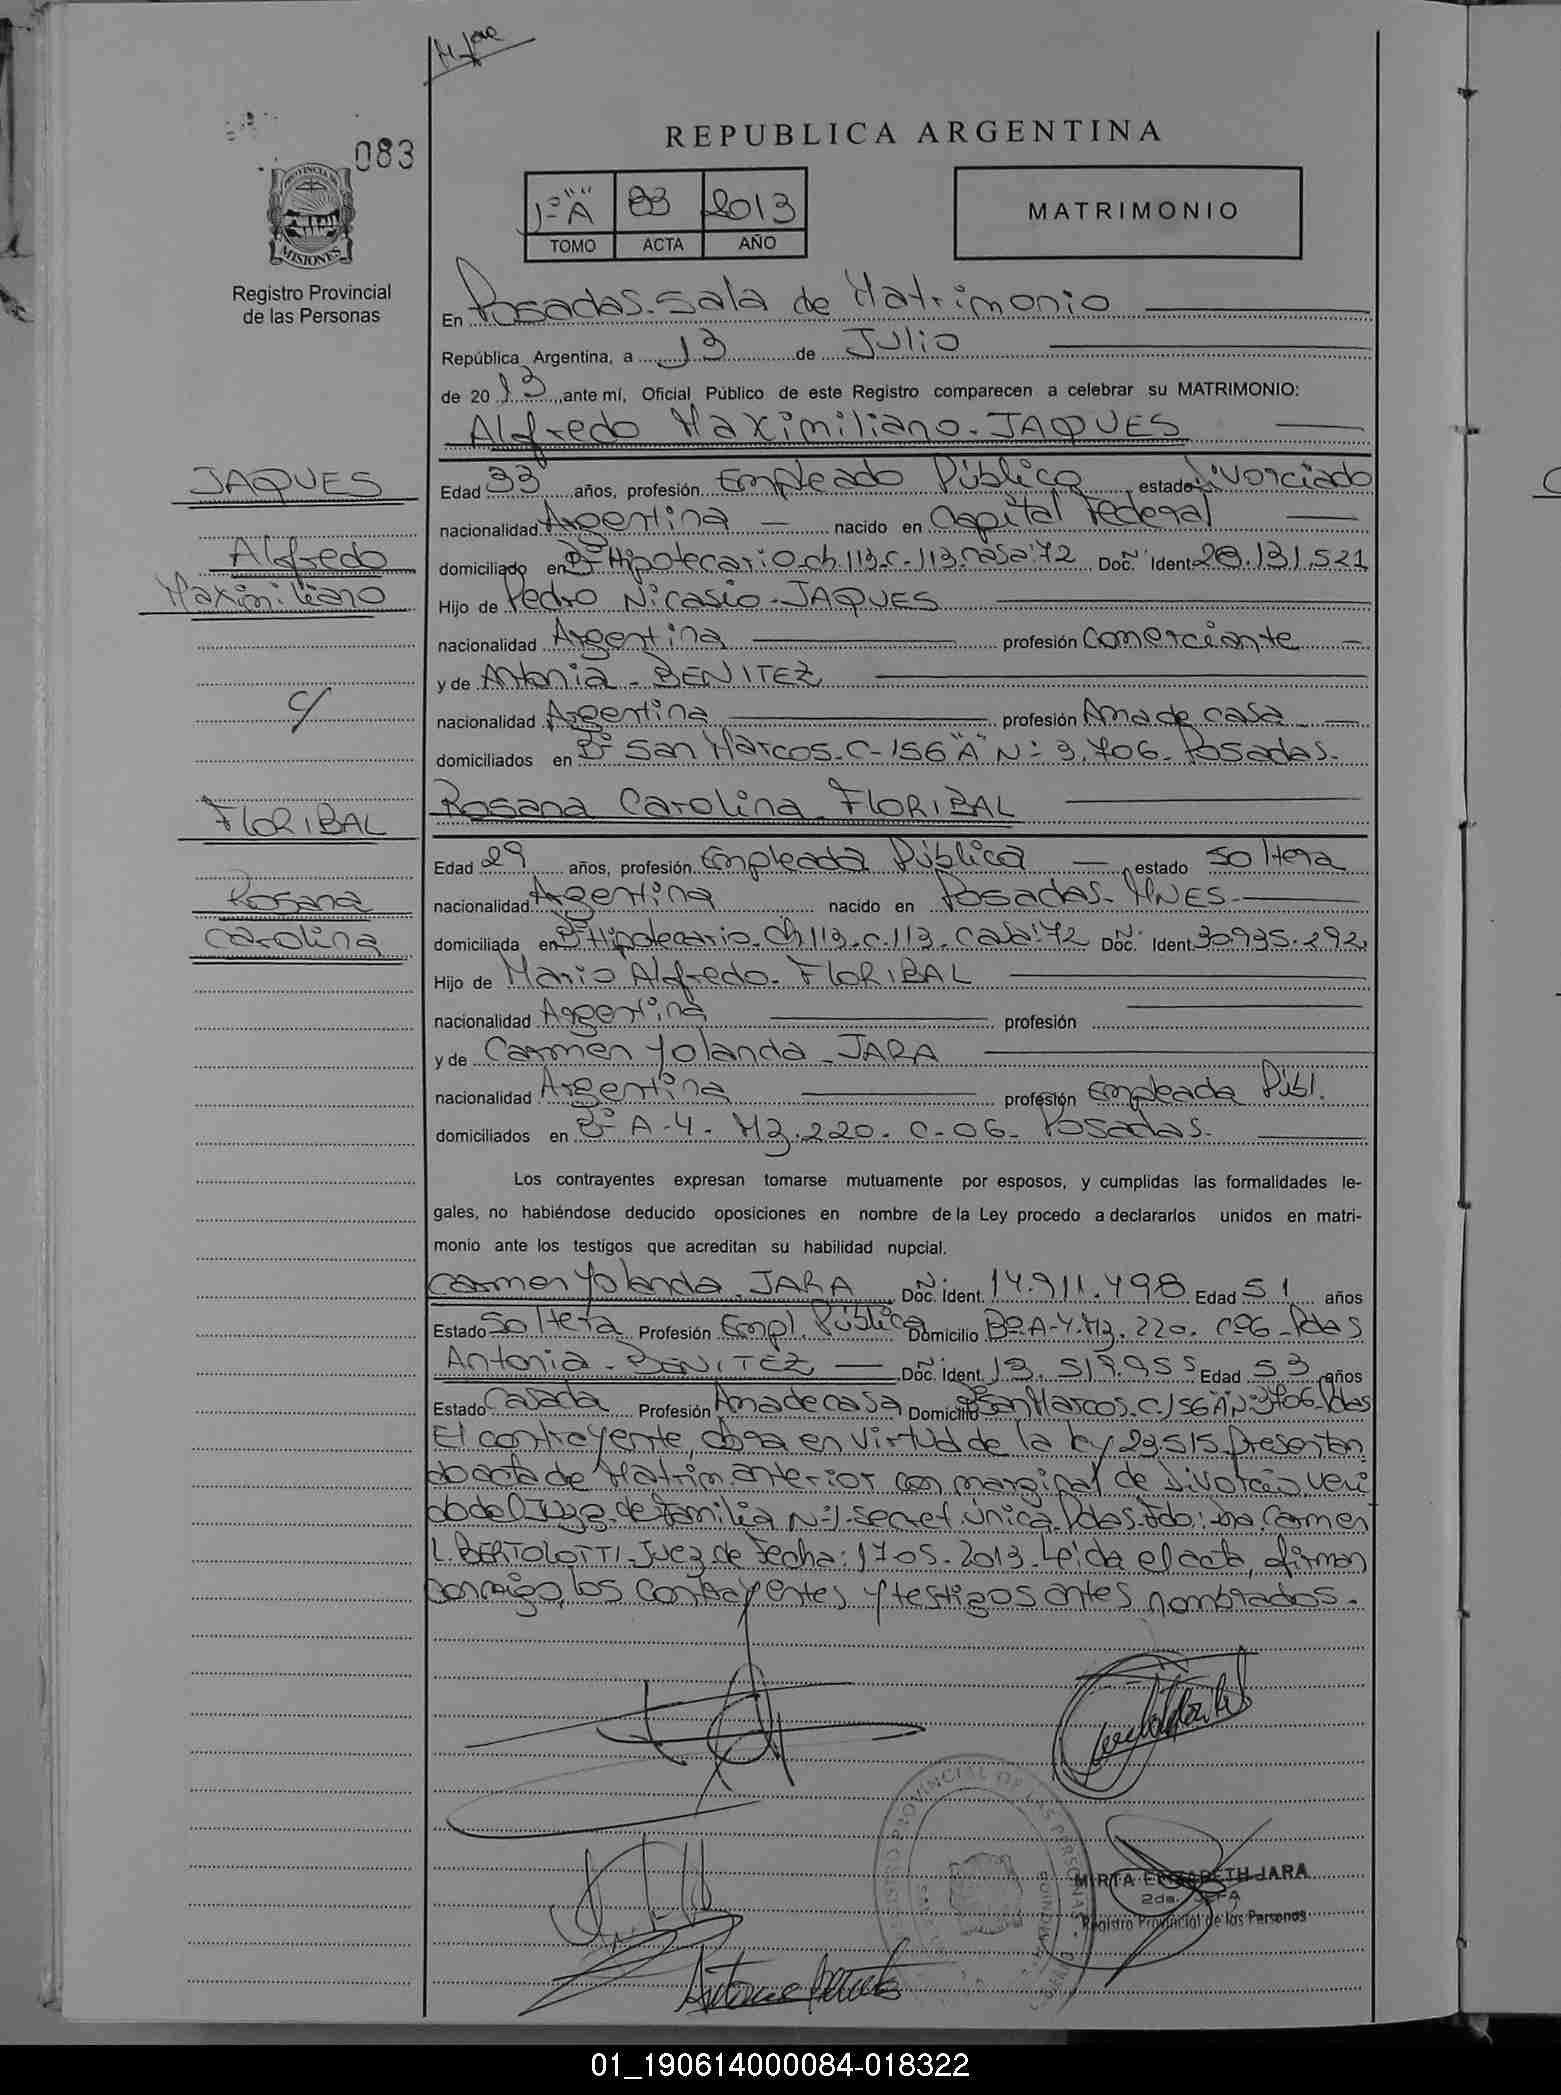 083
PROVINCIA DE
MISIONES
Registro Provincial
de las Personas
REPUBLICA ARGENTINA
1º "A" 83 2013
TOMO ACTA AÑO
MATRIMONIO
En Posadas-Sala de Matrimonio
República Argentina, a 13 de Julio
de 20 13 ante mí, Oficial Público de este Registro comparecen a celebrar su MATRIMONIO:
Alfredo Maximiliano-JAQUES
JAQUES
Alfredo
Maximiliano
c/
FLORIBAL
Rosana
Carolina
Edad 33 años, profesión Empleado Público estado divorciado
nacionalidad Argentina nacido en Capital Federal
domiciliado en Bº Hipotecario-ch 113-C-113-casa:72 Doc. Ident. 28.131.521
Hijo de Pedro Nicasio-JAQUES
nacionalidad Argentina profesión comerciante
y de Antonia-BENITEZ
nacionalidad Argentina profesión Ama de casa
domiciliados en Bº San Marcos-C-156 "A" Nº 3.706-Posadas.
Rosana Carolina-FLORIBAL
Edad 29 años, profesión Empleada Pública estado soltera
nacionalidad Argentina nacido en Posadas-MNES-
domiciliada en Bº Hipotecario-Ch 113-C-113-casa:72 Doc. Ident. 30.935.292
Hijo de Mario Alfredo-FLORIBAL
nacionalidad Argentina profesión
y de Carmen Yolanda-JARA
nacionalidad Argentina profesión Empleada Públ.
domiciliados en Bº A-4-Mz.220-C-06-Posadas-
Los contrayentes expresan tomarse mutuamente por esposos, y cumplidas las formalidades le-
gales, no habiéndose deducido oposiciones en nombre de la Ley procedo a declararlos unidos en matri-
monio ante los testigos que acreditan su habilidad nupcial.
Carmen Yolanda-JARA Doc. Ident. 14.911.498 Edad 51 años
Estado Soltera Profesión Empl. Pública Domicilio Bº A-4-Mz.220-Cº06-Pdas
Antonia-BENITEZ Doc. Ident. 13.519.955 Edad 53 años
Estado Casada Profesión Ama de casa Domicilio Bº San Marcos-C-156 "A" Nº 3706-Pdas
El contrayente, obra en virtud de la ley 23.515 presentan
do acta de Matrim. anterior con marginal de divorcio veni
do del Juzg. de Familia Nº 1-Secret. única-Pdas-Fdo: Dra. Carmen
L. BERTOLOTTI-Juez de Fecha: 17-05-2013-Leída el acta, firman
conmigo, los contrayentes y testigos antes nombrados.
REGISTRO PROVINCIAL DE LAS PERSONAS
MIRTA ELIZABETH JARA
2da. JEFA
Registro Provincial de las Personas
01_190614000084-018322